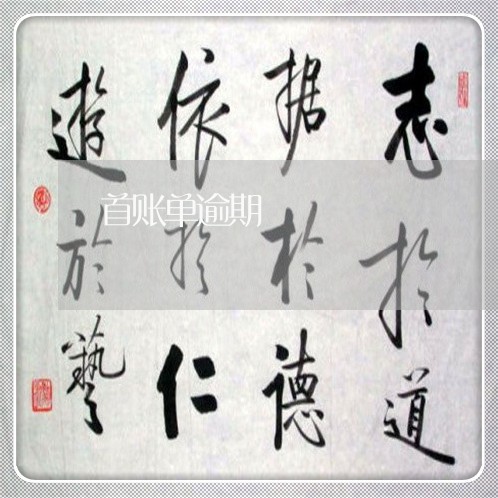 志於道
据於德
依於仁
遊於藝
首账单逾期